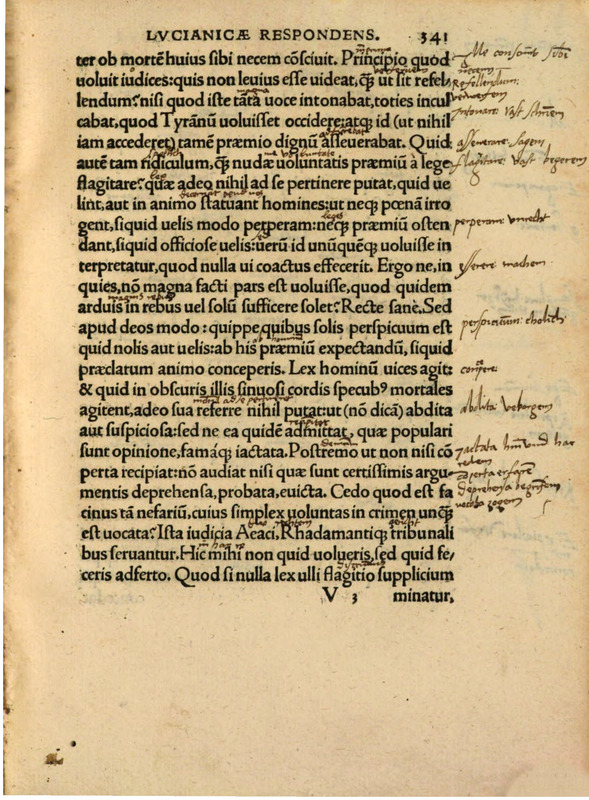 LVCIANICÆ RESPONDENS. 341
ter ob mortē huius sibi necem cōsciuit. Principio quod
uoluit iudices: quis non leuius esse uideat, q̃ ut sit refel,
lendum? nisi quod iste tāta uoce intonabat, toties incul
cabat, quod Tyrānū uoluisset occidere: atq; id (ut nihil
iam accederet) tamē præmio dignū asseuerabat. Quid
autē tam ridiculum, q̃ nudæ uoluntatis præmiū à lege
flagitare? quæ adeo nihil ad se pertinere putat, quid ue
lint, aut in animo statuant homines: ut neq; pœnā irro
gent, siquid uelis modo perperam: neq; præmiū osten
dant, siquid officiose uelis: uerū id unūquēq; uoluisse in
terpretatur, quod nulla ui coactus effecerit. Ergo ne, in
quies, nō magna facti pars est uoluisse, quod quidem
arduis in rebus uel solū sufficere solet? Recte sanè. Sed
apud deos modo: quippe quibus solis perspicuum est
quid nolis aut uelis: ab his præmiū expectandū, siquid
præclarum animo conceperis. Lex hominū uices agit:
& quid in obscuris illis sinuosi cordis specubꝰ mortales
agitent, adeo sua referre nihil putat: ut (nō dicā) abdita
aut suspiciosa: sed ne ea quidē admittat, quæ populari
sunt opinione, famáq; iactata. Postremo ut non nisi cō
perta recipiat: nō audiat nisi quæ sunt certissimis argu
mentis deprehensa, probata, euicta. Cedo quod est fa
cinus tā nefariū, cuius simplex uoluntas in crimen unq̃
est uocata? Ista iudicia Aeaci, Rhadamantiq; tribunali
bus seruantur. Hîc mihi non quid uolueris, sed quid fe,
ceris adferto. Quod si nulla lex ulli flagitio supplicium
V 3 minatur,
Me consom̄t sibi
necem
Refellendum:
asseuerare: sagem
flagitare: Vast begerem
perperam: vnrecht
efferere: machem
perspicuum:
abdita: verborgem